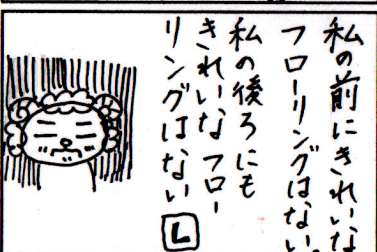 私の前にきれいな
フローリングはない。
私の後ろにも
きれいなフロー
リングはない
L